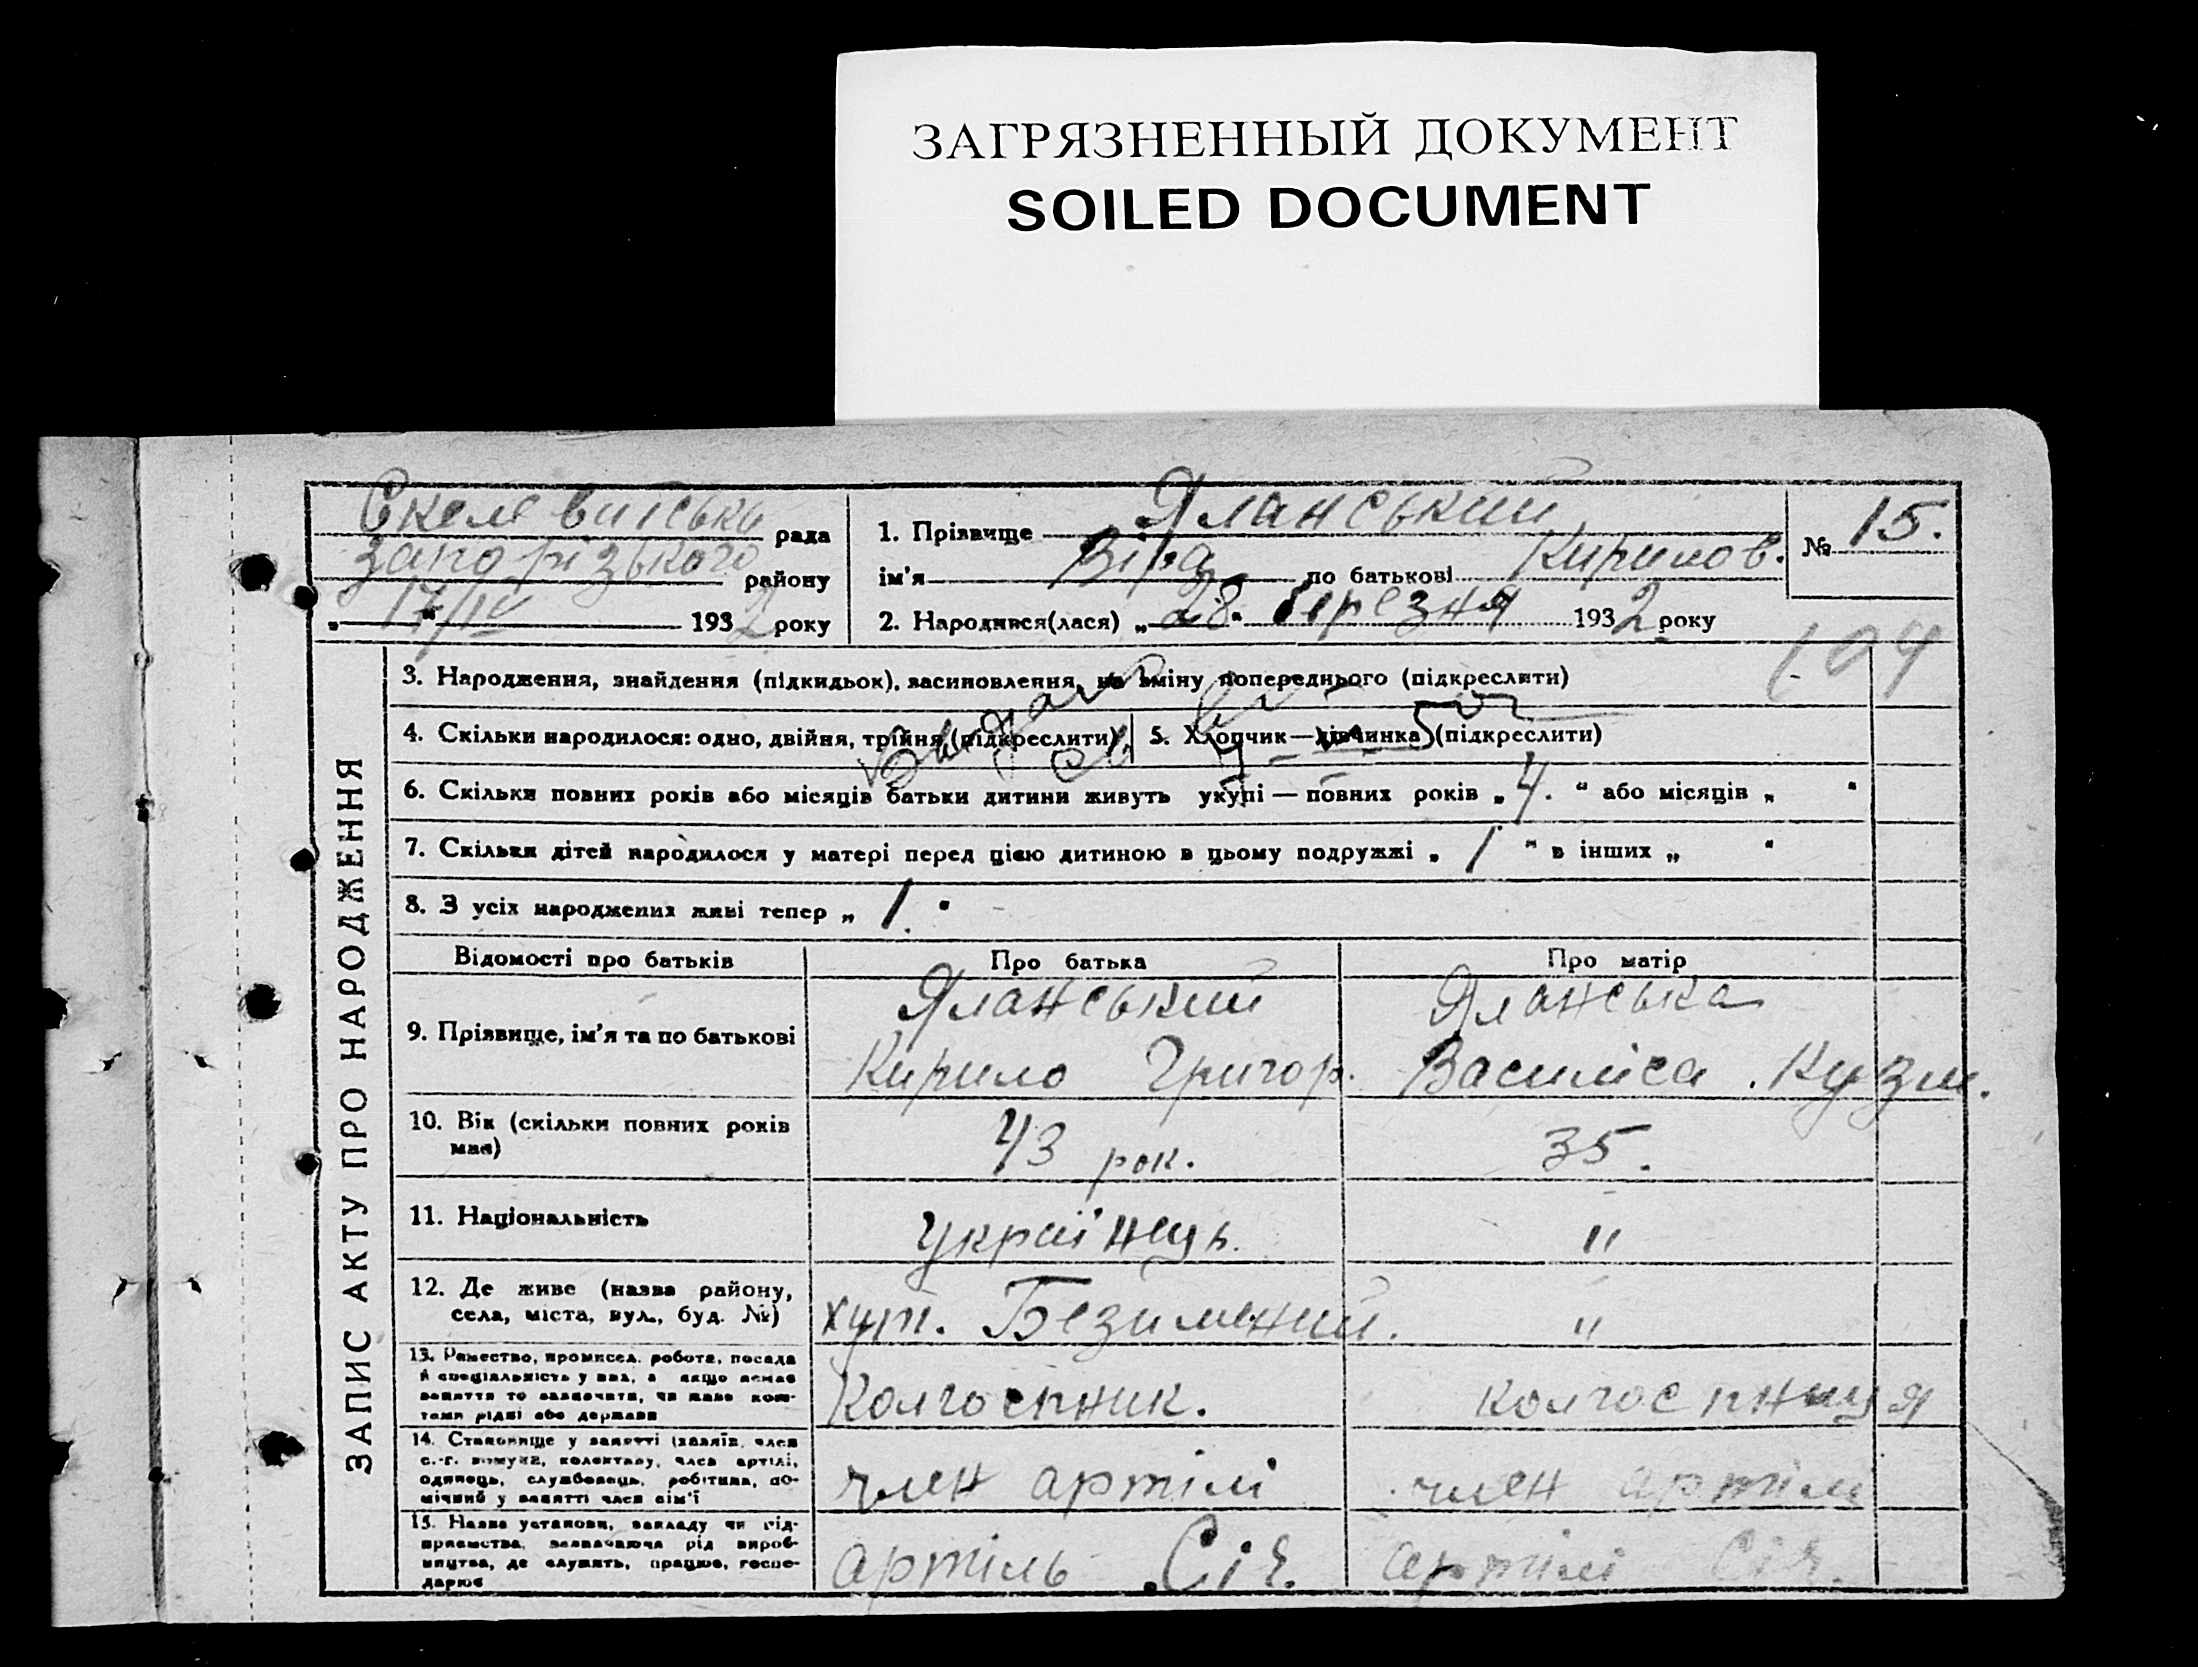 ЗАГРЯЗНЕННЫЙ ДОКУМЕНТ
SOILED DOCUMENT
Скелевитська рада
запорізького району
„17/IV" 1932 року
1. Прізвище Яланський
ім'я Віра по батькові Кирилов.
2. Народився(лася) „28" березня 1932 року
№ 15.
104
ЗАПИС АКТУ ПРО НАРОДЖЕННЯ
3. Народження, знайдення (підкидьок), засиновлення, на зміну попереднього (підкреслити)
4. Скільки народилося: одно, двійня, трійня (підкреслити) 5. Хлопчик—дівчинка (підкреслити)
6. Скільки повних років або місяців батьки дитини живуть укупі — повних років „4." або місяців „ "
7. Скільки дітей народилося у матері перед цією дитиною в цьому подружжі „1" в інших „ "
8. З усіх народжених живі тепер „1."
Відомості про батьків Про батька Про матір
9. Прізвище, ім'я та по батькові
Яланський
Кирило Григор.
Яланська
Василіса Кузм.
10. Вік (скільки повних років
має)
43 рок.
35.
11. Національність
українець.
"
12. Де живе (назва району,
села, міста, вул., буд. №)
хут. Безименний.
"
13. Ремество, промисел, робота, посада
й спеціальність у них, а якщо немає
заняття то зазначити, чи живе кош-
тами рідні або держави
Колгоспник.
колгоспниця
14. Становище у занятті (хазяїн, член
с.-г. комуни, колективу, член артілі,
одинець, службовець, робітник, по-
мічний у занятті член сім'ї
член артілі
член артілі
15. Назва установи, закладу чи під-
приємства, зазначаючи рід вироб-
ництва, де служить, працює, госпо-
дарює
артіль Січ.
артілі Січ.